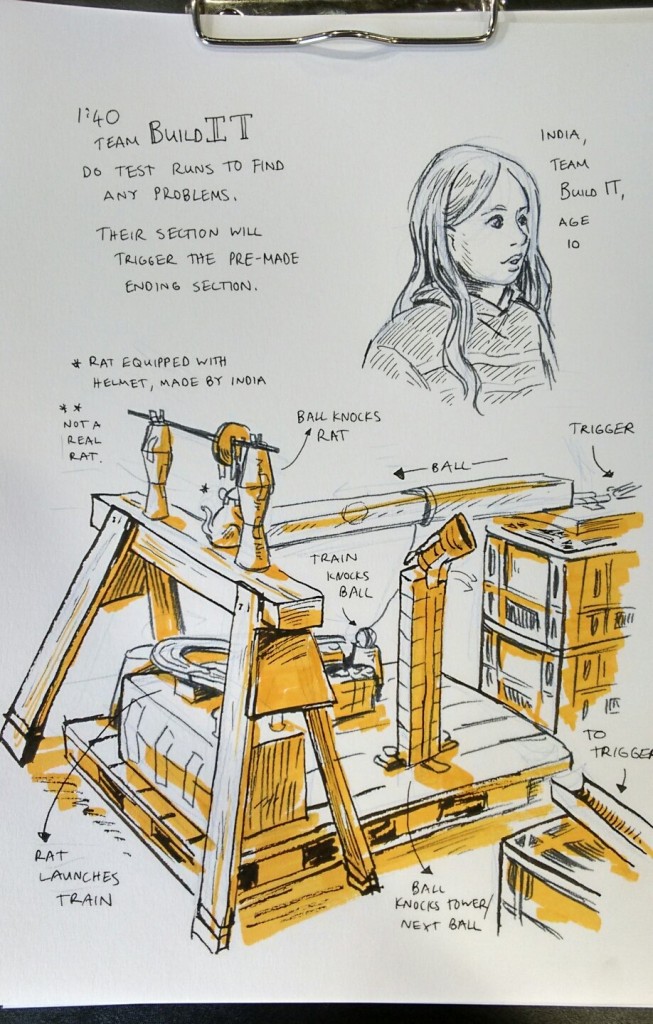 1:40
TEAM BUILD IT
DO TEST RUNS TO FIND
ANY PROBLEMS.
THEIR SECTION WILL
TRIGGER THE PRE-MADE
ENDING SECTION.
INDIA,
TEAM
BUILD IT,
AGE
10
* RAT EQUIPPED WITH
HELMET, MADE BY INDIA
**
NOT A
REAL
RAT.
*
BALL KNOCKS
RAT
BALL
TRIGGER
TRAIN
KNOCKS
BALL
TO
TRIGGER
RAT
LAUNCHES
TRAIN
BALL
KNOCKS TOWER/
NEXT BALL